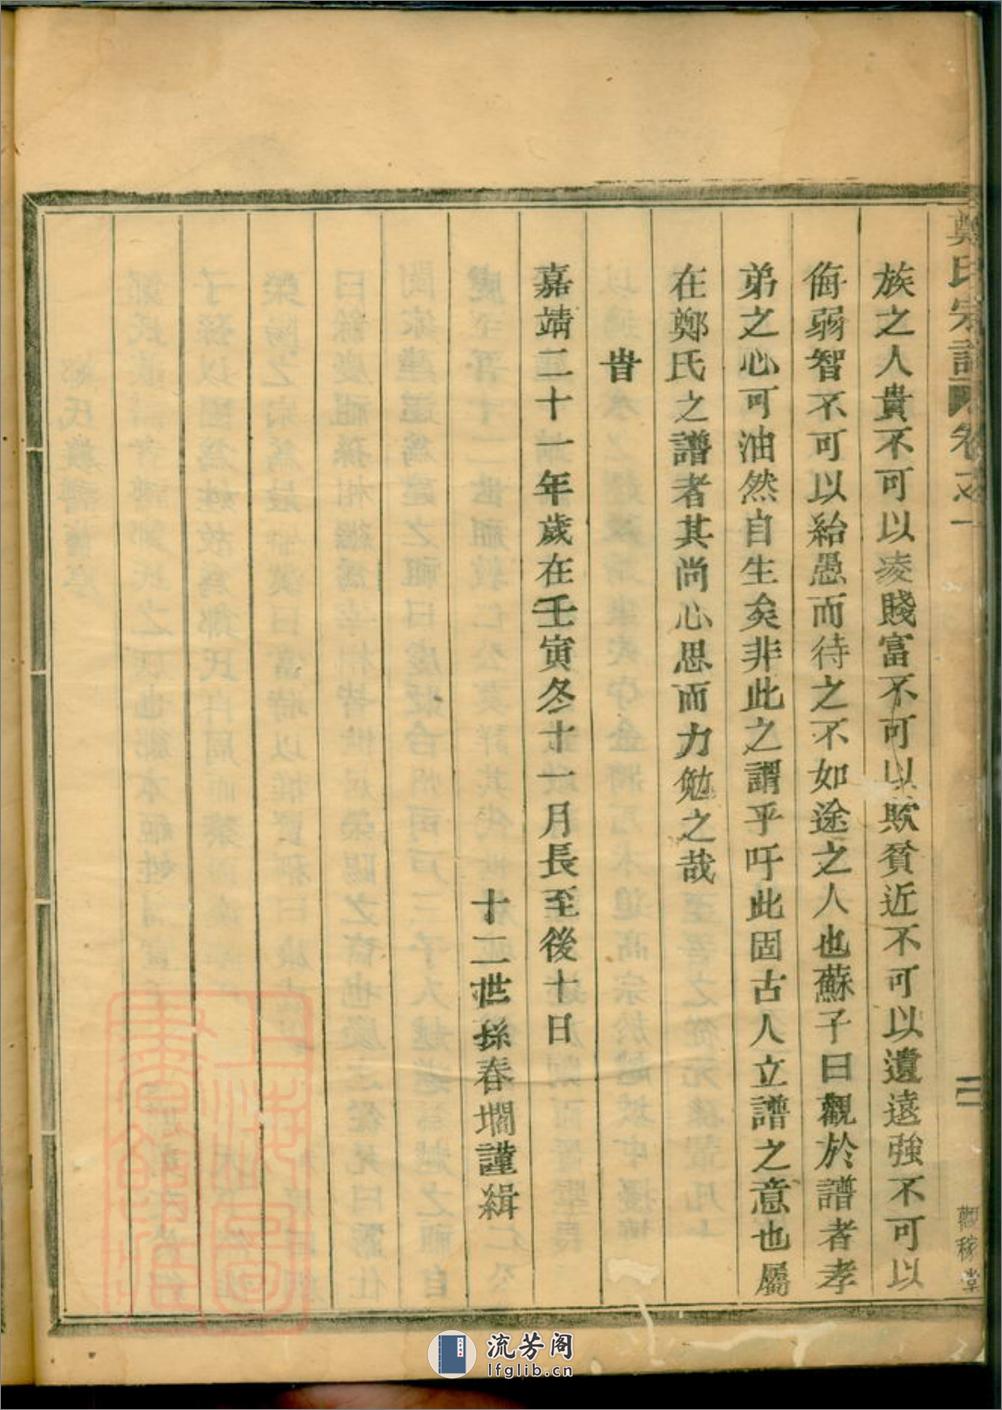 鄭氏宗譜 卷之一
二
觀稼堂
族之人貴不可以凌賤富不可以欺貧近不可以遺遠強不可以
侮弱智不可以紿愚而待之不如途之人也蘇子曰觀於譜者孝
弟之心可油然自生矣非此之謂乎吁此固古人立譜之意也屬
在鄭氏之譜者其尚心思而力勉之哉
旹
嘉靖二十一年歲在壬寅冬十一月長至後十日
十二世孫春墹謹緝
流芳阁
lfglib.cn